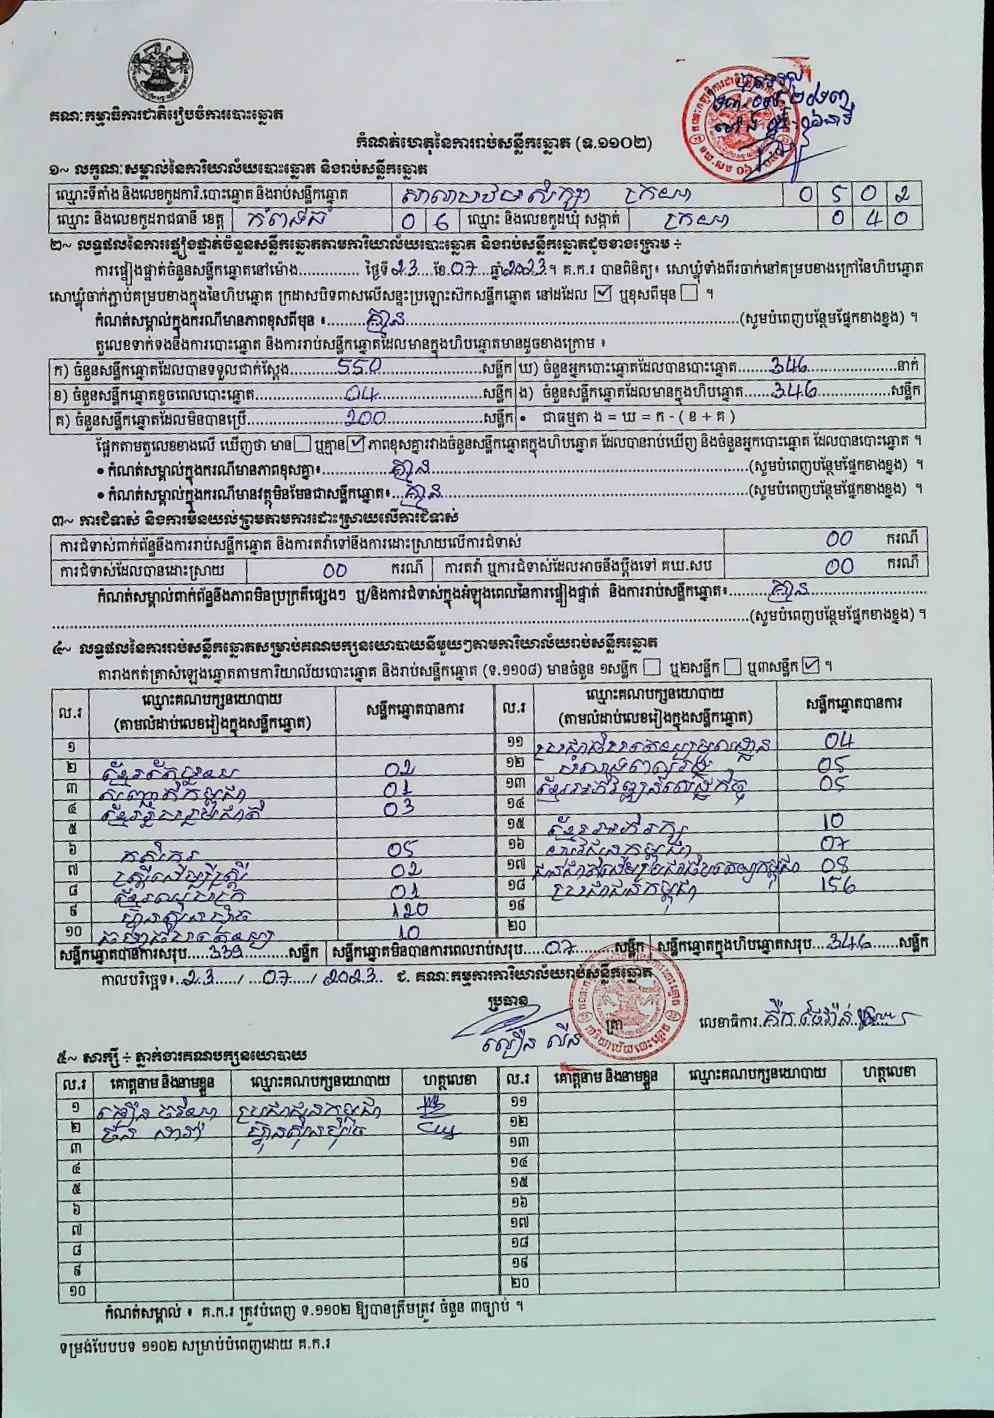 គណៈកម្មាធិការជាតិរៀបចំការបោះឆ្នោត
កំណត់ហេតុនៃការរាប់សន្លឹកឆ្នោត (ទ.១១០២)
១~ លក្ខណៈសម្គាល់នៃការិយាល័យបោះឆ្នោត និងរាប់សន្លឹកឆ្នោត
ឈ្មោះទីតាំង និងលេខកូដការិ.បោះឆ្នោត និងរាប់សន្លឹកឆ្នោត សាលាបឋមសិក្សា ក្រយា 0 5 0 2
ឈ្មោះ និងលេខកូដរាជធានី ខេត្ត កំពង់ធំ 0 6 ឈ្មោះ និងលេខកូដឃុំ សង្កាត់ ក្រយា 0 4 0
២~ លទ្ធផលនៃការផ្ទៀងផ្ទាត់ចំនួនសន្លឹកឆ្នោតតាមការិយាល័យបោះឆ្នោត និងរាប់សន្លឹកឆ្នោតដូចខាងក្រោម ÷
ការផ្ទៀងផ្ទាត់ចំនួនសន្លឹកឆ្នោតនៅម៉ោង.............. ថ្ងៃទី23...ខែ.07...ឆ្នាំ2023។ គ.ក.រ បានពិនិត្យ៖ សោឃ្លុំទាំងពីរចាក់នៅគម្របខាងក្រៅនៃហិបឆ្នោត
សោឃ្លុំចាក់ភ្ជាប់គម្របខាងក្នុងនៃហិបឆ្នោត ក្រដាសបិទពាសលើសន្ទះប្រឡោះស៊កសន្លឹកឆ្នោត នៅដដែល ☑ ឬខុសពីមុន ☐ ។
កំណត់សម្គាល់ក្នុងករណីមានភាពខុសពីមុន ៖.......គ្មាន.......(សូមបំពេញបន្ថែមផ្នែកខាងខ្នង) ។
តួលេខទាក់ទងនឹងការបោះឆ្នោត និងការរាប់សន្លឹកឆ្នោតដែលមានក្នុងហិបឆ្នោតមានដូចខាងក្រោម ៖
ក) ចំនួនសន្លឹកឆ្នោតដែលបានទទួលជាក់ស្តែង.......550.......សន្លឹក ឃ) ចំនួនអ្នកបោះឆ្នោតដែលបានបោះឆ្នោត.....346.......នាក់
ខ) ចំនួនសន្លឹកឆ្នោតខូចពេលបោះឆ្នោត.......04.......សន្លឹក ង) ចំនួនសន្លឹកឆ្នោតដែលមានក្នុងហិបឆ្នោត.....346.......សន្លឹក
គ) ចំនួនសន្លឹកឆ្នោតដែលមិនបានប្រើ.......200.......សន្លឹក • ជាធម្មតា ង = ឃ = ក - ( ខ + គ )
ផ្អែកតាមតួលេខខាងលើ ឃើញថា មាន ☐ ឬគ្មាន ☑ ភាពខុសគ្នារវាងចំនួនសន្លឹកឆ្នោតក្នុងហិបឆ្នោត ដែលបានរាប់ឃើញ និងចំនួនអ្នកបោះឆ្នោត ដែលបានបោះឆ្នោត ។
• កំណត់សម្គាល់ក្នុងករណីមានភាពខុសគ្នា៖.......គ្មាន.......(សូមបំពេញបន្ថែមផ្នែកខាងខ្នង) ។
• កំណត់សម្គាល់ក្នុងករណីមានវត្ថុមិនមែនជាសន្លឹកឆ្នោត៖...គ្មាន.......(សូមបំពេញបន្ថែមផ្នែកខាងខ្នង) ។
៣~ ការជំទាស់ និងការមិនយល់ព្រមតាមការដោះស្រាយលើការជំទាស់
ការជំទាស់ពាក់ព័ន្ធនឹងការរាប់សន្លឹកឆ្នោត និងការតវ៉ាទៅនឹងការដោះស្រាយលើការជំទាស់ 00 ករណី
ការជំទាស់ដែលបានដោះស្រាយ 00 ករណី ការតវ៉ា ឬការជំទាស់ដែលអាចនឹងប្តឹងទៅ គឃ.សប 00 ករណី
កំណត់សម្គាល់ពាក់ព័ន្ធនឹងភាពមិនប្រក្រតីផ្សេងៗ ឬ/និងការជំទាស់ក្នុងអំឡុងពេលនៃការផ្ទៀងផ្ទាត់ និងការរាប់សន្លឹកឆ្នោត៖.......គ្មាន.......
.......(សូមបំពេញបន្ថែមផ្នែកខាងខ្នង) ។
៤~ លទ្ធផលនៃការរាប់សន្លឹកឆ្នោតសម្រាប់គណបក្សនយោបាយនីមួយៗតាមការិយាល័យរាប់សន្លឹកឆ្នោត
តារាងកត់ត្រាសំឡេងឆ្នោតតាមការិយាល័យបោះឆ្នោត និងរាប់សន្លឹកឆ្នោត (ទ.១១០៨) មានចំនួន ១សន្លឹក ☐ ឬ២សន្លឹក ☐ ឬ៣សន្លឹក ☑ ។
ល.រ ឈ្មោះគណបក្សនយោបាយ (តាមលំដាប់លេខរៀងក្នុងសន្លឹកឆ្នោត) សន្លឹកឆ្នោតបានការ ល.រ ឈ្មោះគណបក្សនយោបាយ (តាមលំដាប់លេខរៀងក្នុងសន្លឹកឆ្នោត) សន្លឹកឆ្នោតបានការ
១ ១១ ប្រជាធិបតេយ្យមូលដ្ឋាន 04
២ 02 ១២ 05
៣ សញ្ជាតិកម្ពុជា 01 ១៣ 05
៤ ខ្មែររួបរួមជាតិ 03 ១៤
៥ ១៥ ខ្មែរអភិរក្ស 10
៦ កសិករ 05 ១៦ 07
៧ ស្ត្រីដើម្បីស្ត្រី 02 ១៧ 08
៨ 01 ១៨ ប្រជាជនកម្ពុជា 156
៩ ហ្វ៊ុនស៊ិនប៉ិច 120 ១៩
១០ 10 ២០
សន្លឹកឆ្នោតបានការសរុប.....339.......សន្លឹក សន្លឹកឆ្នោតមិនបានការពេលរាប់សរុប.....07.......សន្លឹក សន្លឹកឆ្នោតក្នុងហិបឆ្នោតសរុប...346.....សន្លឹក
កាលបរិច្ឆេទ៖..23...../...07...../ 2023.. ជ. គណៈកម្មការការិយាល័យរាប់សន្លឹកឆ្នោត
ប្រធាន
ត្រា លេខាធិការ
៥~ សាក្សី ÷ ភ្នាក់ងារគណបក្សនយោបាយ
ល.រ គោត្តនាម និងនាមខ្លួន ឈ្មោះគណបក្សនយោបាយ ហត្ថលេខា ល.រ គោត្តនាម និងនាមខ្លួន ឈ្មោះគណបក្សនយោបាយ ហត្ថលេខា
១ ប្រជាជនកម្ពុជា ១១
២ ហ្វ៊ុនស៊ិនប៉ិច ១២
៣ ១៣
៤ ១៤
៥ ១៥
៦ ១៦
៧ ១៧
៨ ១៨
៩ ១៩
១០ ២០
កំណត់សម្គាល់ ៖ គ.ក.រ ត្រូវបំពេញ ទ.១១០២ ឱ្យបានត្រឹមត្រូវ ចំនួន ៣ច្បាប់ ។
ទម្រង់បែបបទ ១១០២ សម្រាប់បំពេញដោយ គ.ក.រ